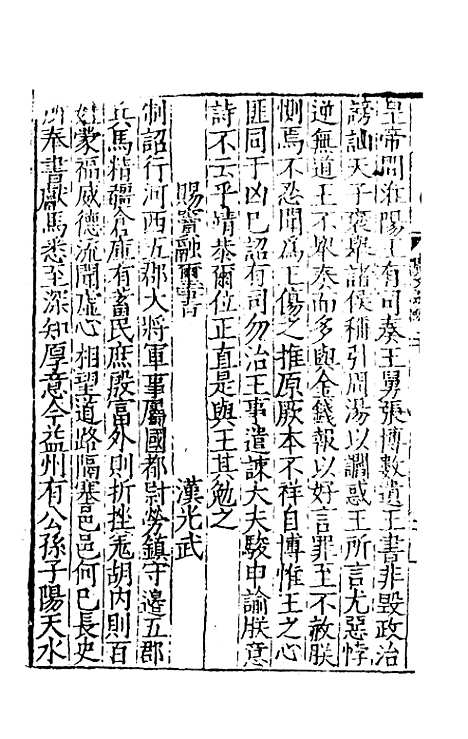 皇帝問淮陽王有司奏王舅張博數遺王書非毀政治
謗訕天子褒舉諸侯稱引周湯以讇惑王所言尤惡悖
逆無道王不舉奏而多與金錢報以好言罪至不赦朕
惻焉不忍聞爲王傷之推原厥本不祥自博惟王之心
匪同于凶已詔有司勿治王事遣諫大夫駿申諭朕意
詩不云乎靖恭爾位正直是與王其勉之
賜竇融璽書 漢光武
制詔行河西五郡大將軍事屬國都尉勞鎮守邊五郡
兵馬精彊倉庫有畜民庶殷富外則折挫羌胡內則百
姓蒙福威德流聞虛心相望道路隔塞邑邑何已長史
所奉書獻馬悉至深知厚意今益州有公孫子陽天水